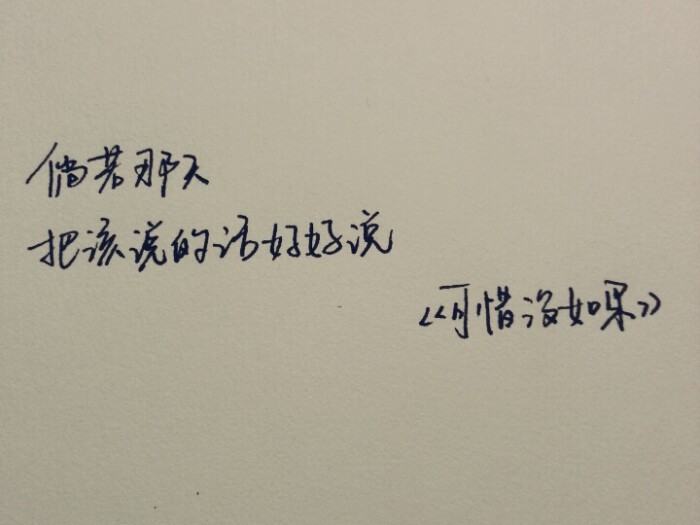 倘若那天
把该说的话好好说
《可惜没如果》